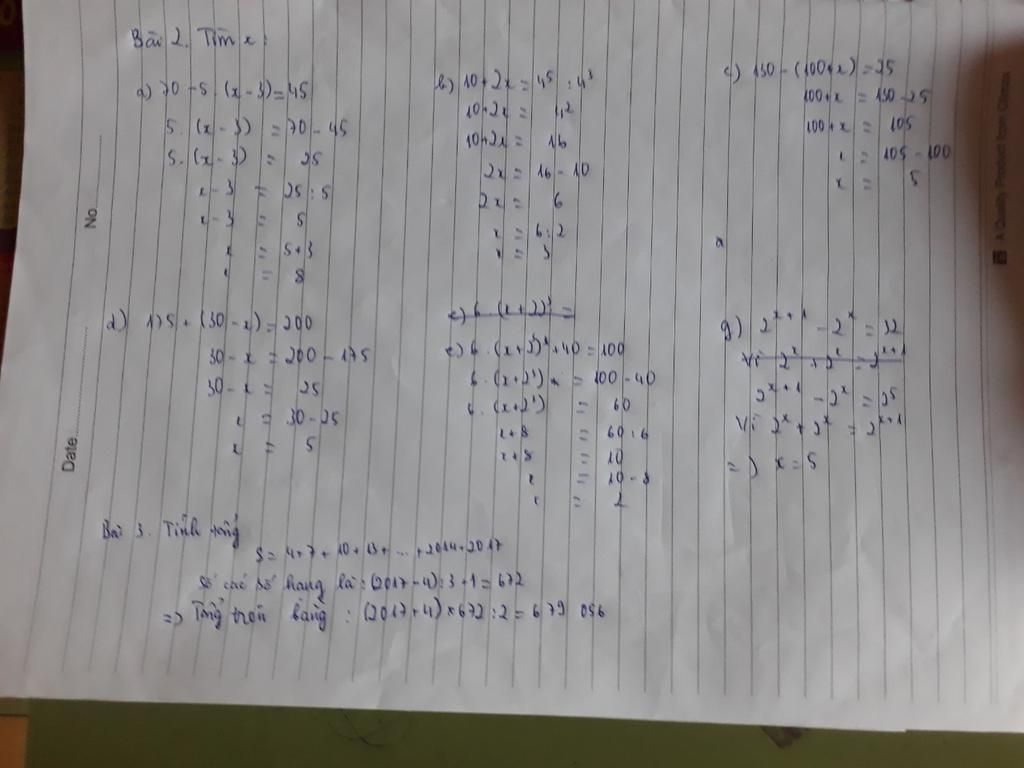 Bài 2. Tìm x:
a) 70 - 5 . (x - 3) = 45
5. (x - 3) = 70 - 45
5. (x - 3) = 25
x - 3 = 25 : 5
x - 3 = 5
x = 5 + 3
x = 8
b) 10 + 2x = 4⁵ : 4³
10 + 2x = 4²
10 + 2x = 16
2x = 16 - 10
2x = 6
x = 6 : 2
x = 3
c) 130 - (100 + x) = 25
100 + x = 130 - 25
100 + x = 105
x = 105 - 100
x = 5
d) 175 + (30 - x) = 200
30 - x = 200 - 175
30 - x = 25
x = 30 - 25
x = 5
e) 6 . (x + 2)³ =
e) 6 . (x + 40 = 100
6 . (x + 2³) = 100 - 40
6 . (x + 2³) = 60
x + 8 = 60 : 6
x + 8 = 10
x = 10 - 8
x = 2
g) 2ˣ⁺¹ - 2ˣ = 32
Vì 2ˣ + 2ˣ = 2ˣ⁺¹
2ˣ⁺¹ - 2ˣ = 25
Vì 2ˣ + 2ˣ = 2ˣ⁺¹
=) x = 5
Bài 3. Tính tổng
S = 4 + 7 + 10 + 13 + ... + 2014 + 2017
Số các số hạng là : (2017 - 4) : 3 + 1 = 672
=> Tổng trên bằng : (2017 + 4) × 672 : 2 = 679 056
No
Date
A Quality Product from Campus